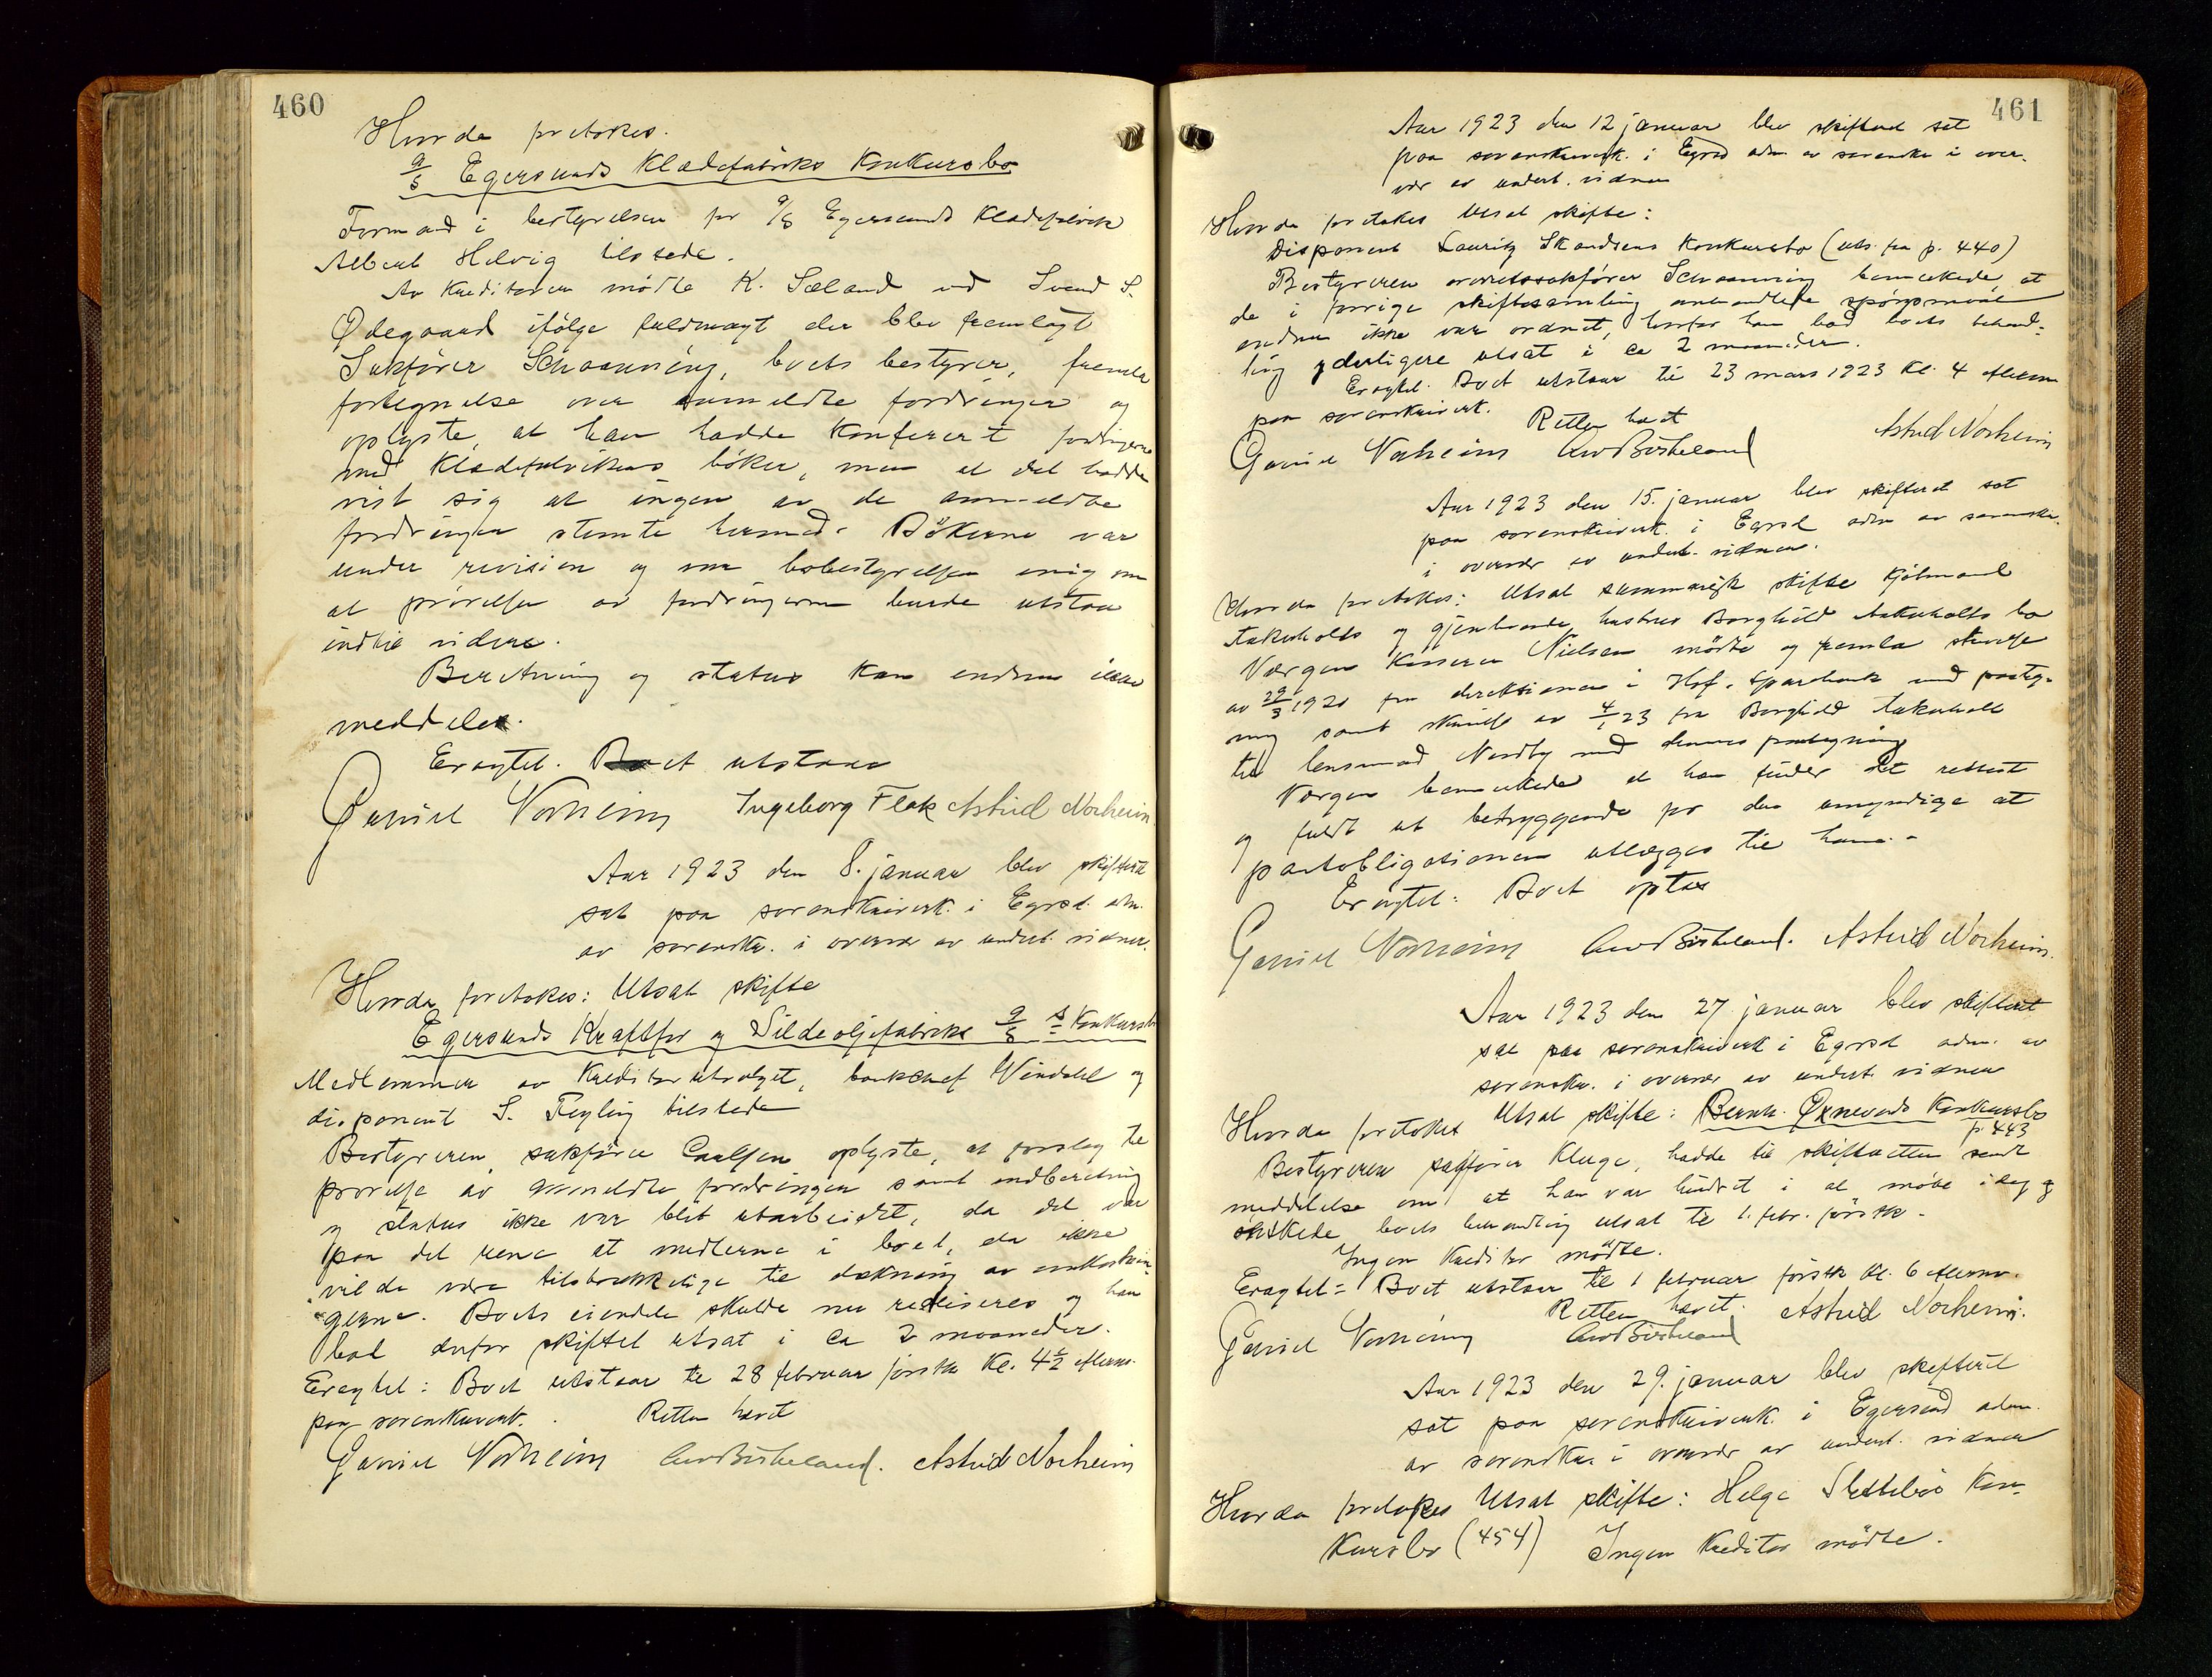 460
Hvorda foretokes.
A/S Egersunds Klædefabriks Konkursbo
Formand i bestyrelsen for A/S Egersunds Klædefabrik
Albert Helvig tilstede.
Av kreditorer mødte K. Sæland ved Svend S.
Ødegaard ifølge fuldmagt der blev fremlagt
Sakfører Schaanning, boets bestyrer, fremla
fortegnelse over anmeldte fordringer og
oplyste, at han hadde konferert fordringerne
med Klædefabrikens bøker, men at det hadde
vist sig at ingen av de anmeldte
fordringer stemte hermed. Bøkerne var
under revision og var bobestyrelsen enig om
at prøvelsen av fordringerne burde utstaa
indtil videre.
Beretning og status kan endnu ikke
meddeles.
Eragtet. Boet utstaar
Gabriel Norheim Ingeborg Flak Astrid Norheim.
Aar 1923 den 8. januar blev skifteret
sat paa sorenskriverk. i Egrsd. adm.
av sorenskr. i overvær av undert. vidner.
Hvorda foretokes: Utsat skifte
Egersunds Kraftfor og Sildeoljefabriks A/S s Konkursbo
Medlemmer av kreditorutvalget, bankchef Vindahl og
disponent S. Feyling tilstede
Bestyreren, sakfører Carlsen oplyste, at forslag til
prøvelse av anmeldte fordringer samt indberetning
og status ikke var blit utarbeidet, da det var
paa det rene at midlerne i boet, der ikke
vilde være tilstrækkelige til dækning av omkostnin-
gerne. Boets eiendele skulde nu realiseres og han
bad derfor skiftet utsat i ca 2 maaneder.
Eragtet: Boet utstaar til 28 februar førstk. Kl. 4½ efterm.
paa sorenskriverk. Retten hævet
Gabriel Norheim Birkeland. Astrid Norheim
461
Aar 1923 den 12 januar blev skifteret sat
paa sorenskriverk. i Egrsd adm. av sorenskr. i over-
vær av undert. vidner
Hvorda foretokes Utsat skifte:
Disponent Lauritz Skandsens Konkursbo (uts. fra p. 440)
Bestyreren overretssakfører Schaanning bemerkede, at
de i forrige skiftesamling omhandlede spørsmaal
endnu ikke var ordnet, hvorfor han bad boets behand-
ling yderligere utsat i ca 2 maaneder.
Eragtet. Boet utstaar til 23 mars 1923 Kl. 4 efterm
paa sorenskriverk. Retten hævet
Gabriel Norheim Birkeland Astrid Norheim
Aar 1923 den 15. januar blev skifteret sat
paa sorenskriverk. i Egrsd adm av sorenskr.
i overvær av undert. vidner.
Hvorda foretokes: Utsat summarisk skifte Kjøbmand
og gjenlevende hustru Borghild bo
Værgen Kasserer Nielsen mødte og fremla skrivelse
av 29/3 1920 fra direktionen i Sparebank med paateg-
ning samt skrivelse av 4/1 23 fra Borghild
til lensmand Nordby med dennes paategning
Værgen bemerkede at han finder det rettest
og fuldt ut betryggende for den umyndige at
partobligationen utlægges til ham.-
Eragtet: Boet optas
Gabriel Norheim Birkeland. Astrid Norheim.
Aar 1923 den 27 januar blev skifteret
sat paa sorenskriverk i Egrsd adm. av
sorenskr. i overvær av undert. vidner
Hvorda foretokes Utsat skifte: Bernh. Ørnevads Konkursbo
p. 443
Bestyreren sakfører Kluge, hadde til skifteretten sendt
meddelelse om at han var hindret i at møte idag og
ønskede boets behandling utsat til 1. febr. førstk.
Ingen Kreditor mødte.
Eragtet: Boet utstaar til 1 februar førstk Kl. 6 efterm.
Retten hævet. Astrid Norheim.
Gabriel Norheim Birkeland
Aar 1923 den 29. januar blev skifteret
sat paa sorenskriverk. i Egersund adm.
av sorenskr. i overvær av undert. vidner
Hvorda foretokes Utsat skifte: Helge Slettebøs Kon-
kursbo (454) Ingen Kreditor mødte.